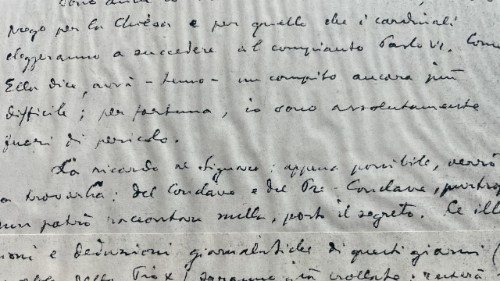 prego per la Chiesa e per quello che i cardinali
eleggeranno a succedere al compianto Paolo VI. Come
Ella dice, avrà - temo - un compito ancora più
difficile; per fortuna, io sono assolutamente
fuori di pericolo.
La ricordo al Signore; appena possibile, verrò
a trovarla; del Conclave e del Pre-Conclave, purtroppo
non potrò raccontare nulla, posto il segreto. Le ill
ioni e deduzioni giornalistiche di questi giorni (
saranno già crollate: resterà